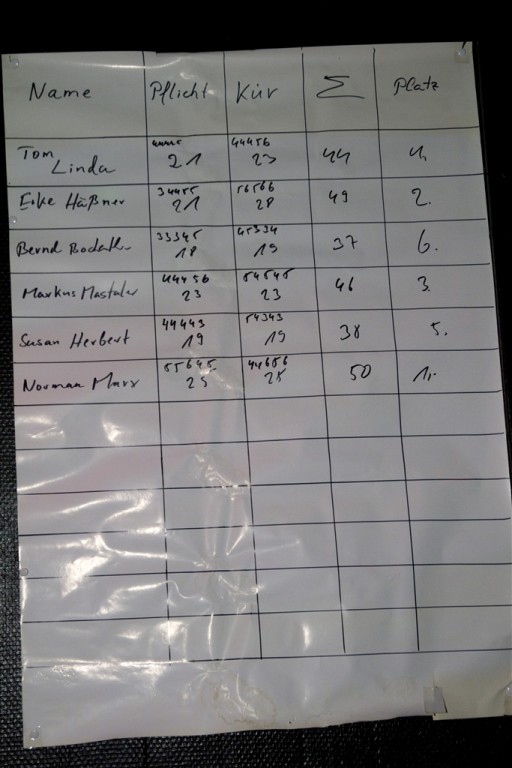 Name Pflicht Kür Σ Platz
Tom 44445 44456
Linda 21 23 44 4.
Eike Häßner 34455 56566
21 28 49 2.
Bernd 33345 45334
18 19 37 6.
Markus Mastaler 44456 54545
23 23 46 3.
Susan Herbert 44443 54343
19 19 38 5.
Norman Marx 55645 44656
25 25 50 1.